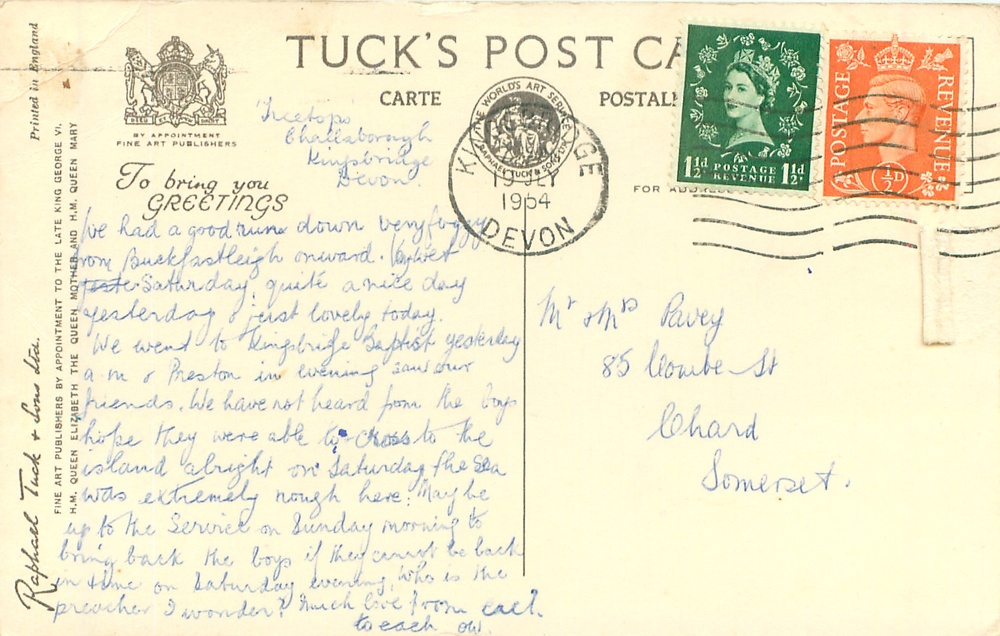 Printed in England
BY APPOINTMENT
FINE ART PUBLISHERS
TUCK'S POST CA
CARTE
POSTAL
THE WORLD'S ART SERVICE
RAPHAEL TUCK & SONS LTD
FOR ADDRESS
K GE
19 JLY
1954
DEVON
1½d POSTAGE REVENUE 1½d
POSTAGE REVENUE
½D
To bring you
GREETINGS
Raphael Tuck & Sons Ltd.
FINE ART PUBLISHERS BY APPOINTMENT TO THE LATE KING GEORGE VI.
H.M. QUEEN ELIZABETH THE QUEEN MOTHER AND H.M. QUEEN MARY
Treetops
Challaborough
Kingsbridge
Devon.
I've had a good run down very foggy
from Buckfastleigh onward. Wet
Saturday quite a nice day
yesterday & just lovely today.
We went to Kingsbrige Baptist yesterday
a.m & Preston in evening saw our
friends. We have not heard from the boys
hope they were able to cross to the
island alright on Saturday the sea
was extremely rough here. May be
up to the Service on Sunday morning to
bring back the boys if they cannot be back
in time on Saturday evening. Who is the
preacher I wonder? Much love from each
to each
Mr & Mrs Pavey
85 Combe St
Chard
Somerset.